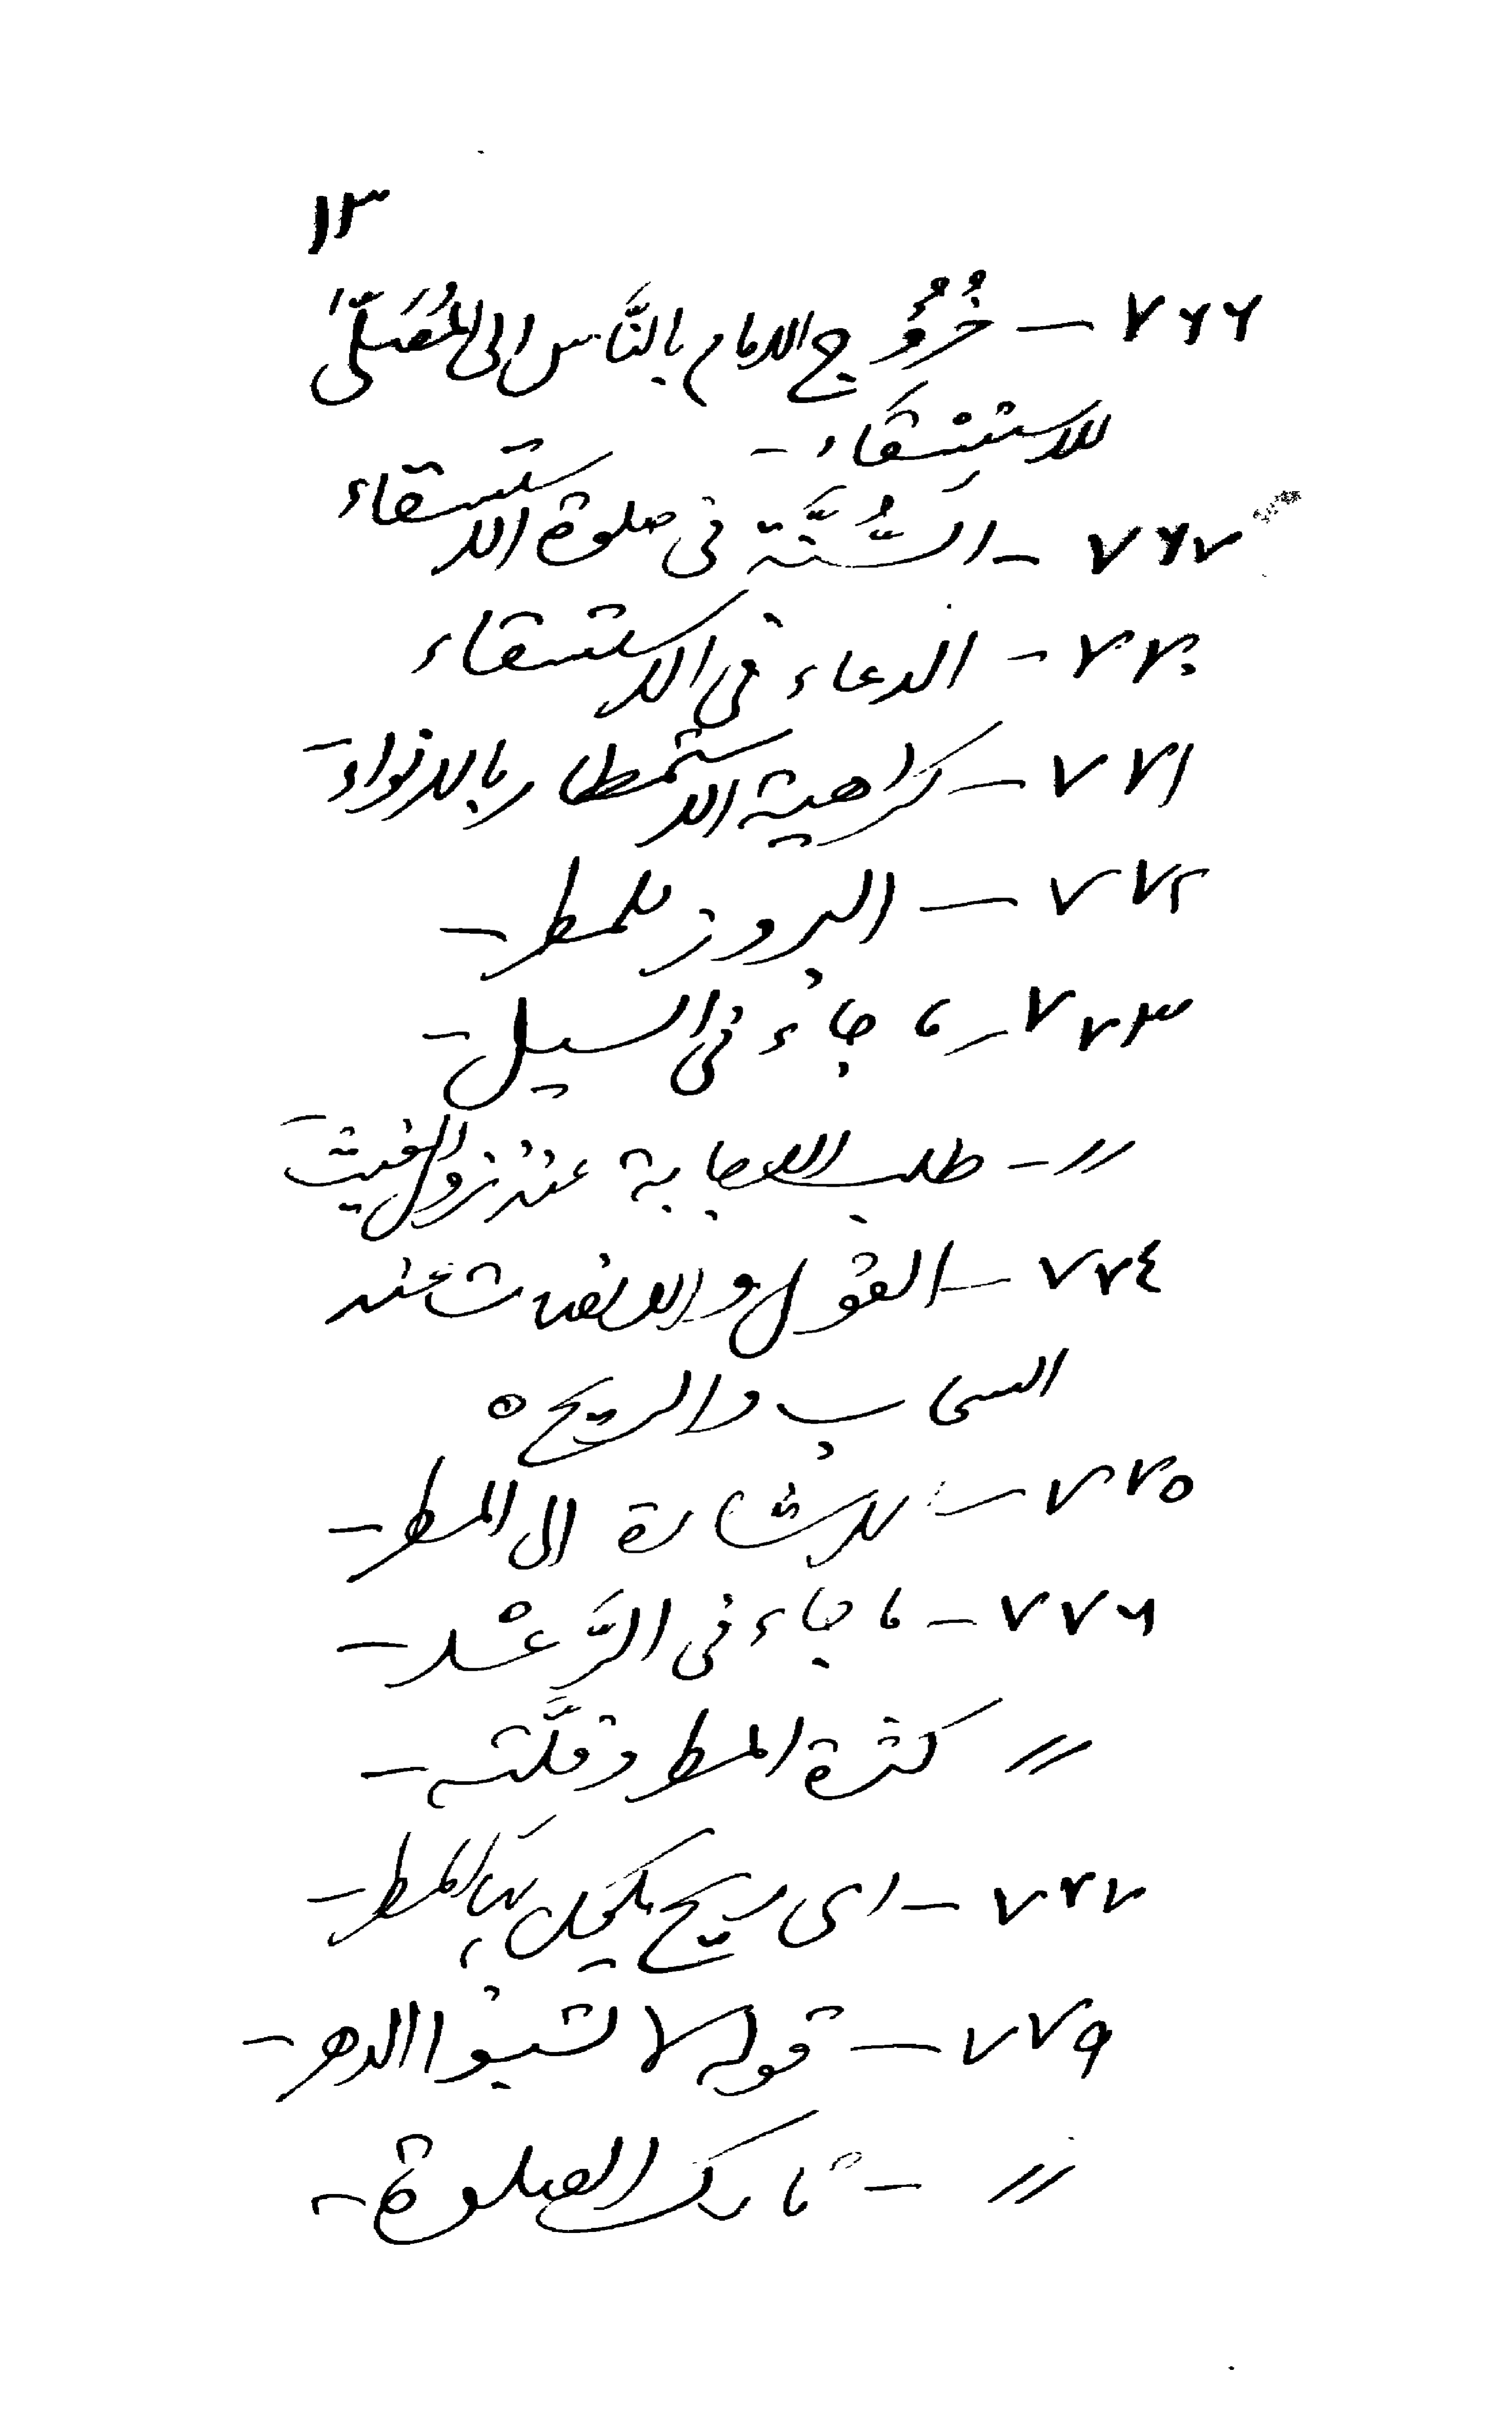 ١٣
٧٦٦ – خُرُوُج الامام بالنَّاس الى المُصَلّىٰ
للاستِسْقَاء –
٧٦٧ – السُّنَّة فى صلوة الاستسقاء
٧٧٠ – الدعاء فى الاستسقاء
٧٧١ – كراهية الاستمطار بالانواء –
٧٧٢ – البروز للمطر –
٧٧٣ – ما جاء فى السيل –
// – طلب الاجابة عند نزول الغيث –
٧٧٤ – القول والانصات عند
السحاب والريح ه
٧٧٥ – الاشارة الى المطر –
٧٧٦ – ما جاء فى الرَّعْد –
// كثرة المطر وقلَّته –
٧٧٧ – اى ريح يكون بها المطر –
٧٧٩ – قوله لا تسبوا الدهر –
// – تارك الصلوة –